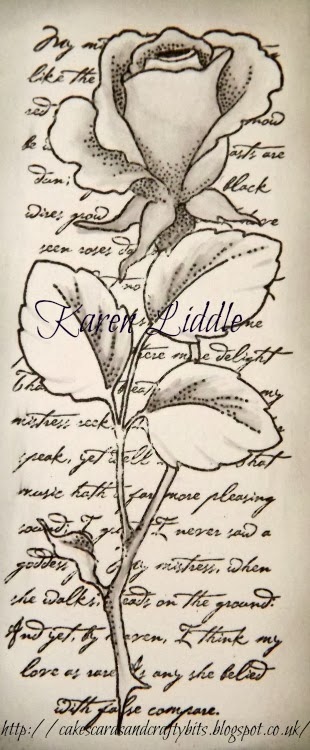 My mi
like the
red snow
be asts are
dun; black
wires grow
seen roses da
no
Karen Liddle
there more delight
Tha reas my
mistress reek
speak, yet well that
music hath far more pleasing
sound; I g I never saw a
goddess g My mistress, when
she walks, eads on the ground:
And yet, by heaven, I think my
love as rare As any she belied
with false compare.
http://cakescardsandcraftybits.blogspot.co.uk/